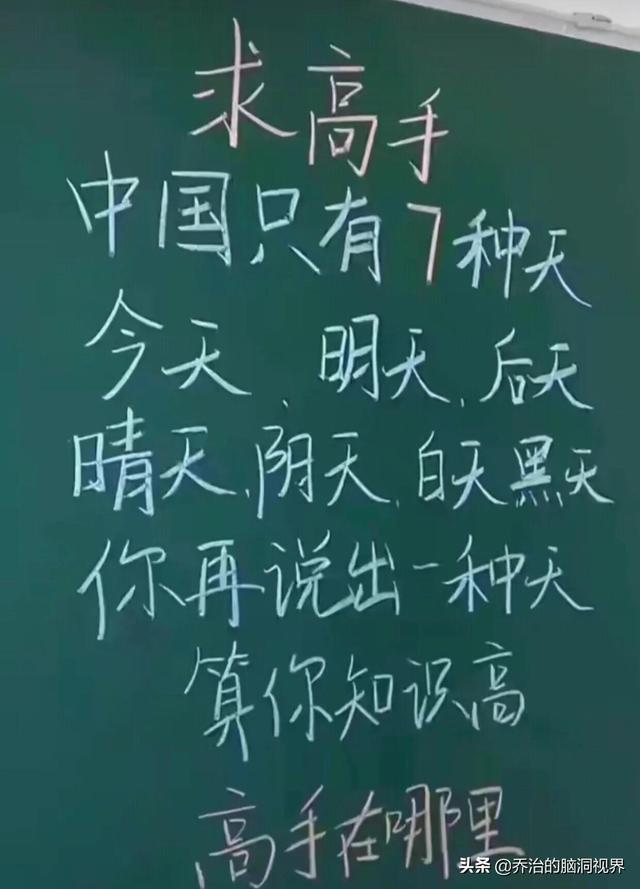 求高手
中国只有7种天
今天、明天、后天
晴天、阴天、白天黑天
你再说出一种天
算你知识高
高手在哪里
头条 @乔治的脑洞视界